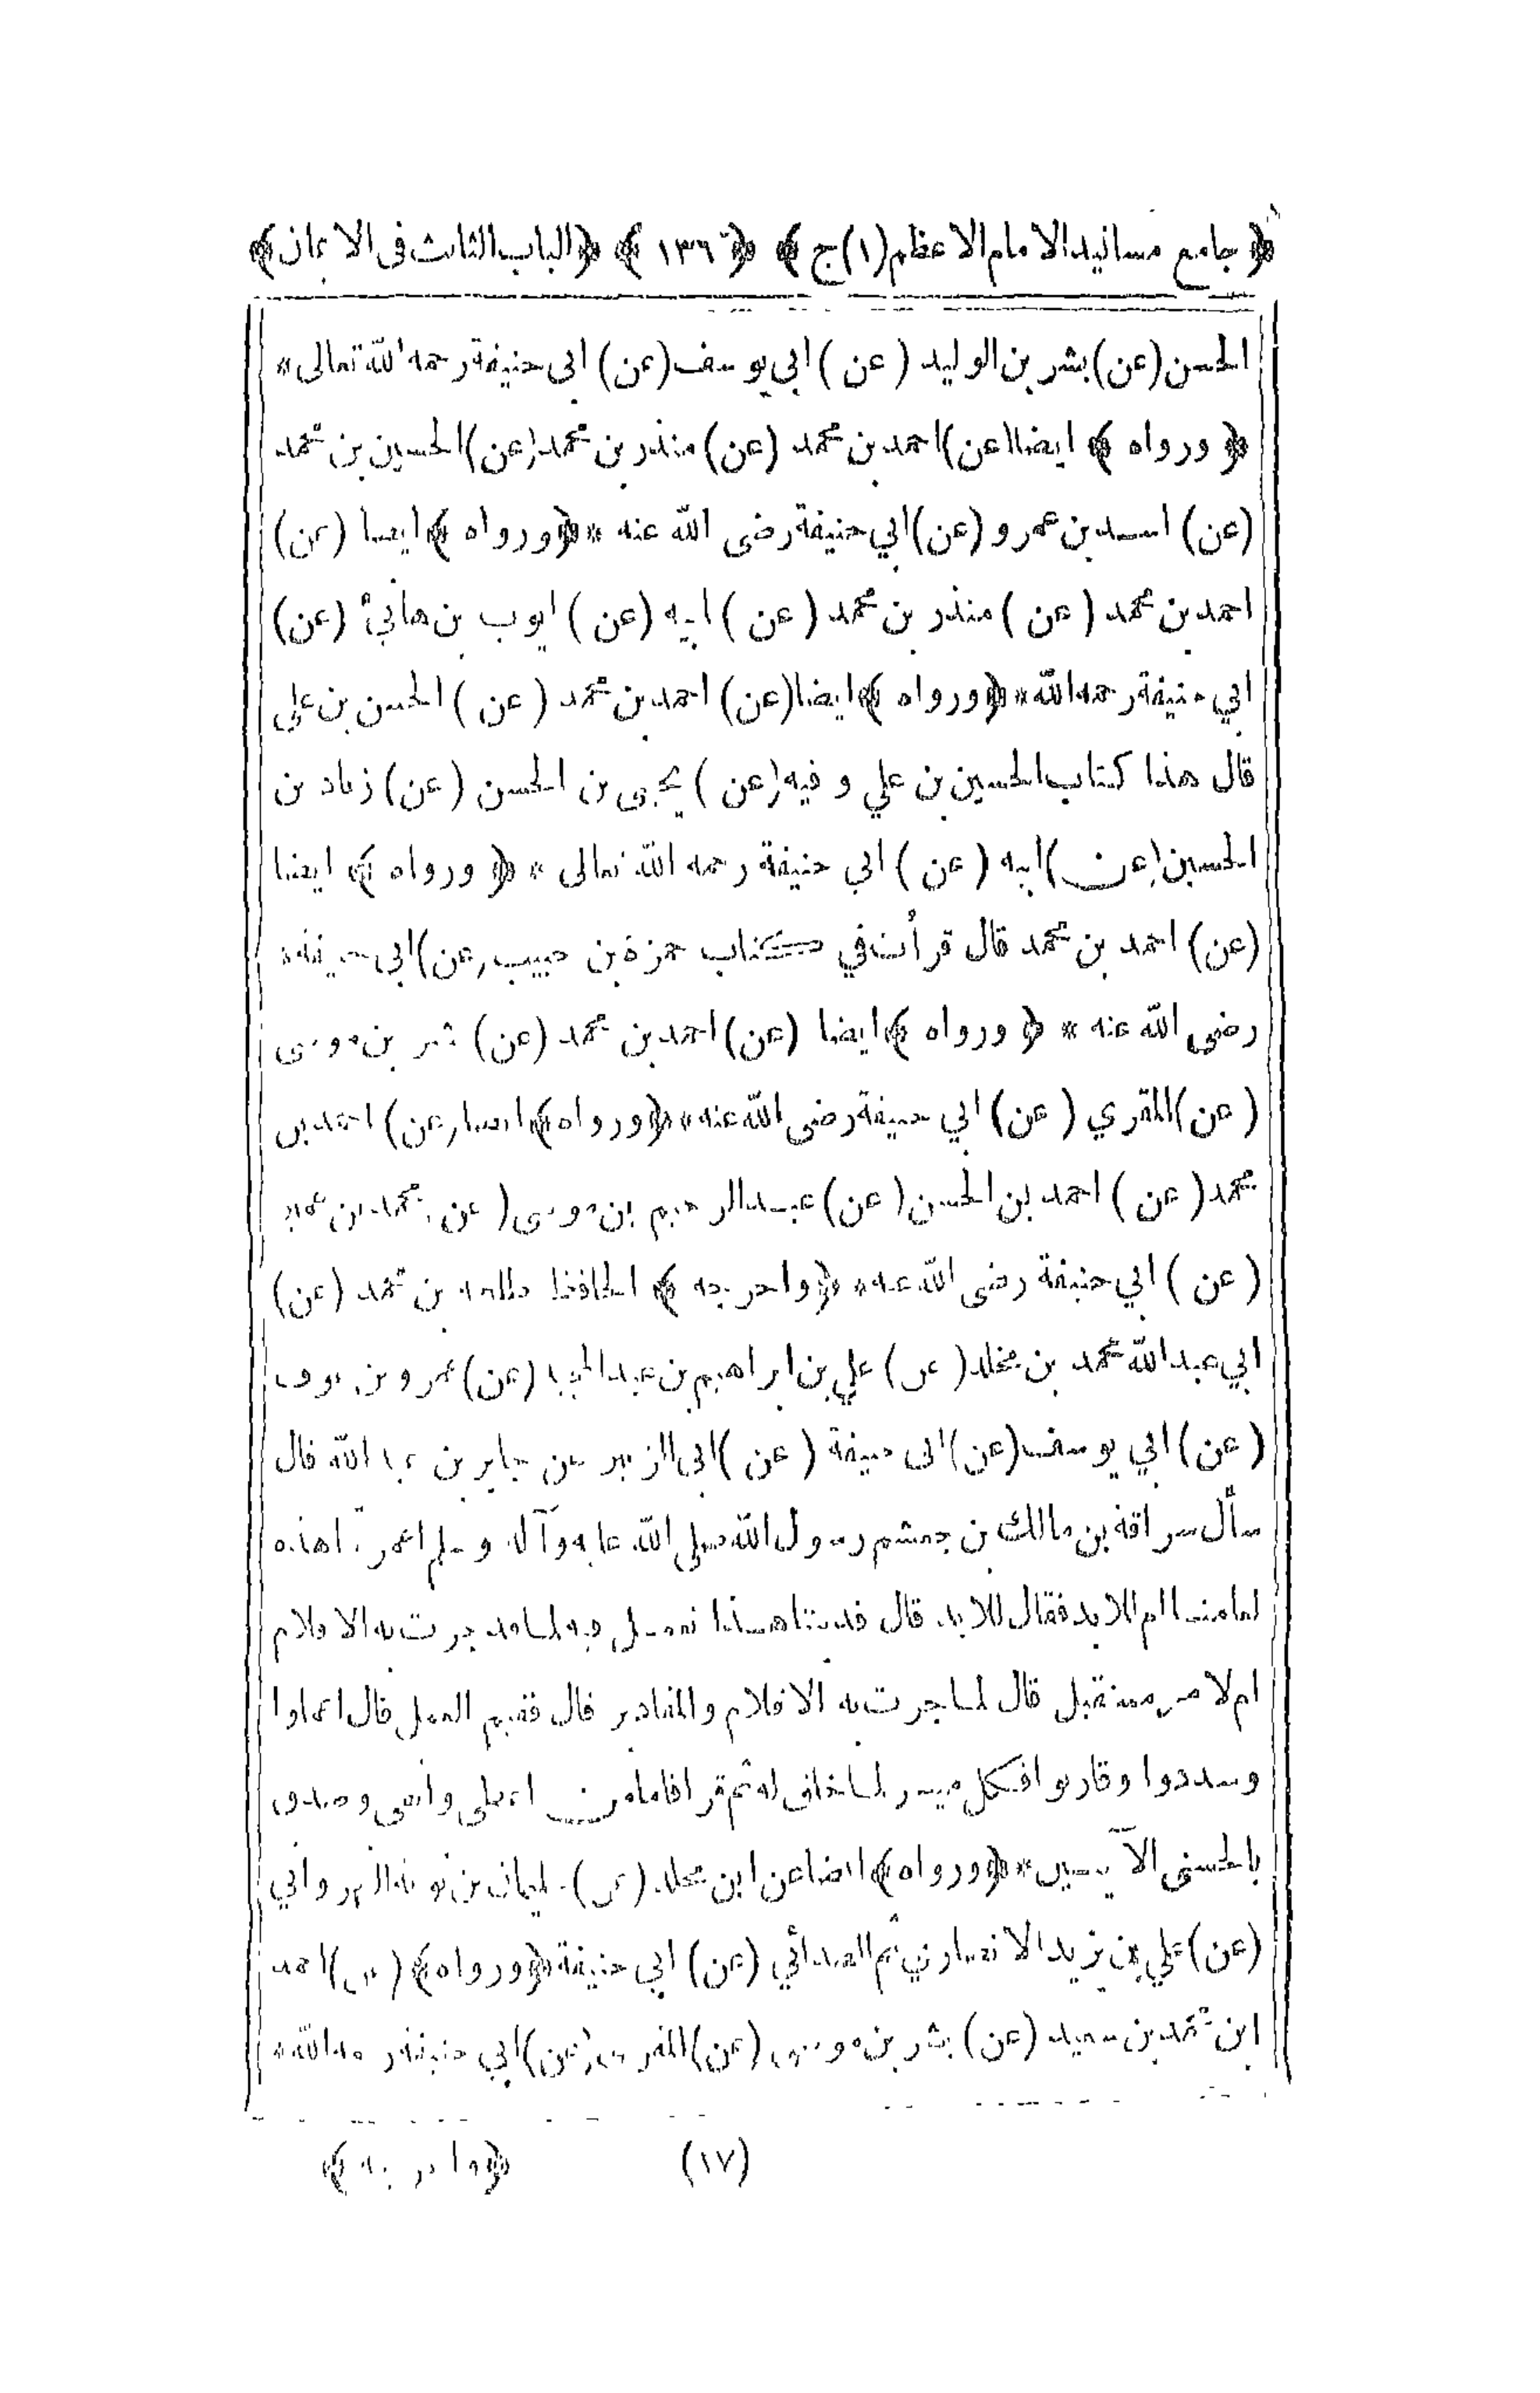 ﴿جامع مسانيد الامام الاعظم (١) ج﴾ ﴿١٣٦﴾ ﴿الباب الثالث فى الايمان﴾
الحسن (عن) بشر بن الوليد (عن) ابي يوسف (عن) ابى حنيفة رحمه الله تعالى *
﴿ورواه﴾ ايضا (عن) احمد بن محمد (عن) منذر بن محمد (عن) الحسين بن محمد
(عن) اسد بن عمرو (عن) ابي حنيفة رضى الله عنه * ﴿ورواه﴾ ايضا (عن)
احمد بن محمد (عن) منذر بن محمد (عن) ابيه (عن) ايوب بن هانئ (عن)
ابي حنيفة رحمه الله * ﴿ورواه﴾ ايضا (عن) احمد بن محمد (عن) الحسن بن علي
قال هذا كتاب الحسين بن علي وفيه (عن) يحيى بن الحسن (عن) زياد بن
الحسين (عن) ابيه (عن) ابي حنيفة رحمه الله تعالى * ﴿ورواه﴾ ايضا
(عن) احمد بن محمد قال قرأت في كتاب حمزة بن حبيب (عن) ابى حنيفة
رضى الله عنه * ﴿ورواه﴾ ايضا (عن) احمد بن محمد (عن) بشر بن موسى
(عن) المقري (عن) ابي حنيفة رضى الله عنه * ﴿ورواه﴾ ايضا (عن) احمد بن
محمد (عن) احمد بن الحسن (عن) عبد الرحيم بن موسى (عن) محمد بن
(عن) ابي حنيفة رضى الله عنه * ﴿واخرجه﴾ الحافظ طلحة بن محمد (عن)
ابي عبد الله محمد بن مخلد (عن) علي بن ابراهيم بن عبد (عن) عمرو بن
(عن) ابي يوسف (عن) ابى حنيفة (عن) ابى الزبير عن جابر بن عبد الله قال
سأل سراقة بن مالك بن جعشم رسول الله صلى الله عليه وآله وسلم اهذه
لعامنا ام للابد فقال للابد قال هذا نعمل فيه لما قد جرت به الاقلام
ام لامر مستقبل قال لما جرت به الاقلام والمقادير قال ففيم العمل قال اعملوا
وسددوا وقاربوا فكل ميسر لما خلق له ثم قرأ فاما من اعطى واتقى وصدق
بالحسنى الآيتين * ﴿ورواه﴾ ايضا عن ابن مخلد (عن) سليمان بن توبة النهرواني
(عن) علي بن يزيد الانصاري ثم الصدائي (عن) ابي حنيفة ﴿ورواه﴾ (عن) احمد
ابن محمد بن سعيد (عن) بشر بن موسى (عن) المقري (عن) ابي حنيفة رحمه الله *
(١٧) ﴿واخرجه﴾